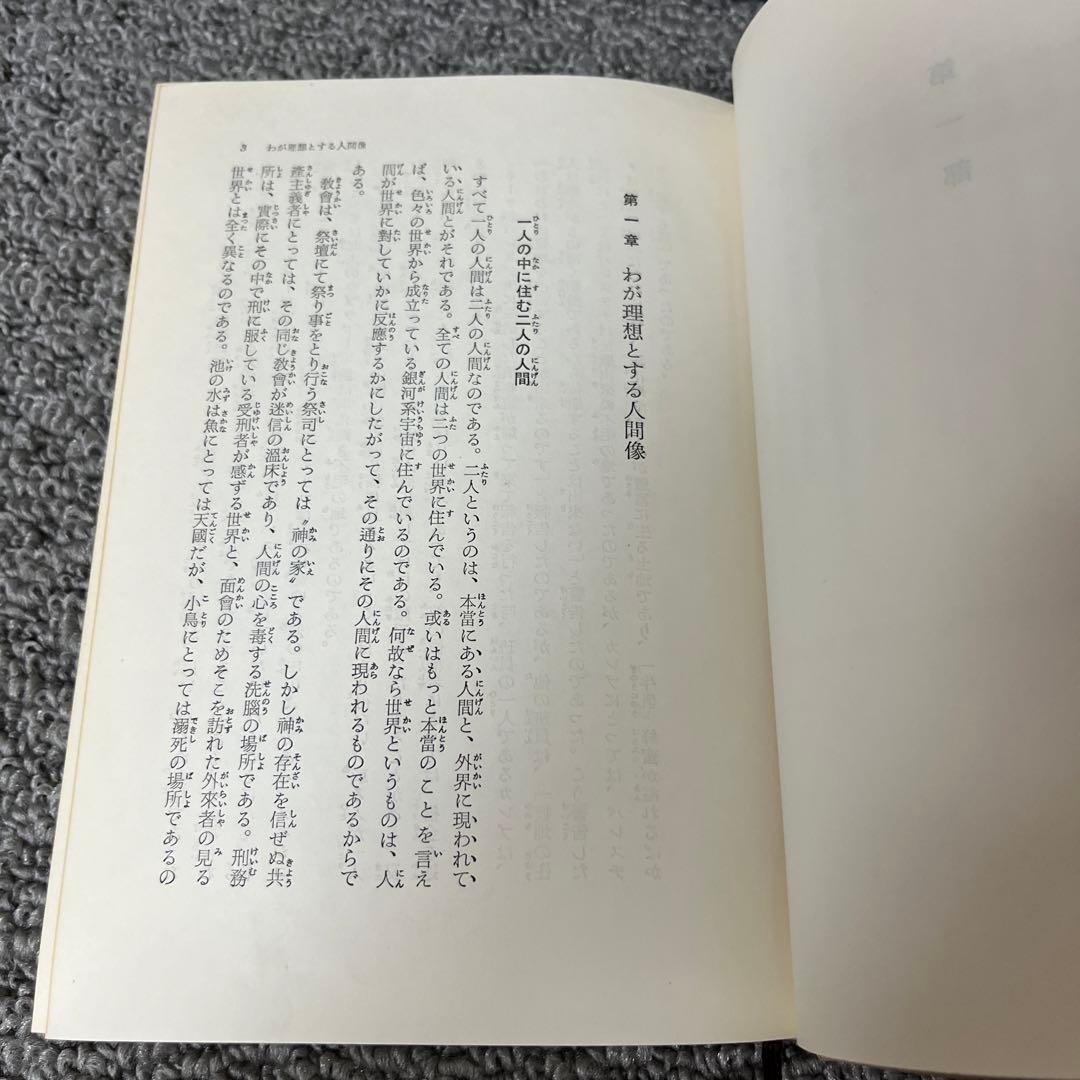 第一部
第一章　わが理想とする人間像
一人の中に住む二人の人間
すべて一人の人間は二人の人間なのである。二人というのは、本當にある人間と、外界に現われて
いる人間とがそれである。全ての人間は二つの世界に住んでいる。或いはもっと本當のことを言え
ば、色々の世界から成立っている銀河系宇宙に住んでいるのである。何故なら世界というものは、人
間が世界に對していかに反應するかにしたがって、その通りにその人間に現われるものであるからで
ある。
教會は、祭壇にて祭り事をとり行う祭司にとっては〝神の家〟である。しかし神の存在を信ぜぬ共
產主義者にとっては、その同じ教會が迷信の溫床であり、人間の心を毒する洗腦の場所である。刑務
所は、實際にその中で刑に服している受刑者が感ずる世界と、面會のためそこを訪れた外來者の見る
世界とは全く異なるのである。池の水は魚にとっては天國だが、小鳥にとっては溺死の場所であるの
3　わが理想とする人間像